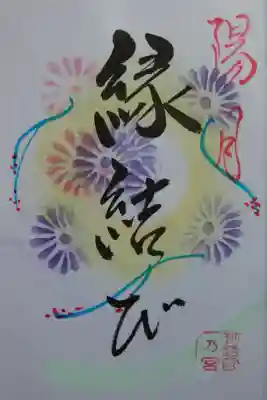 陽月
縁結び
乃宮